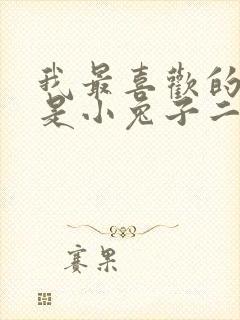 我最喜歡的
是小兔子二
賽果